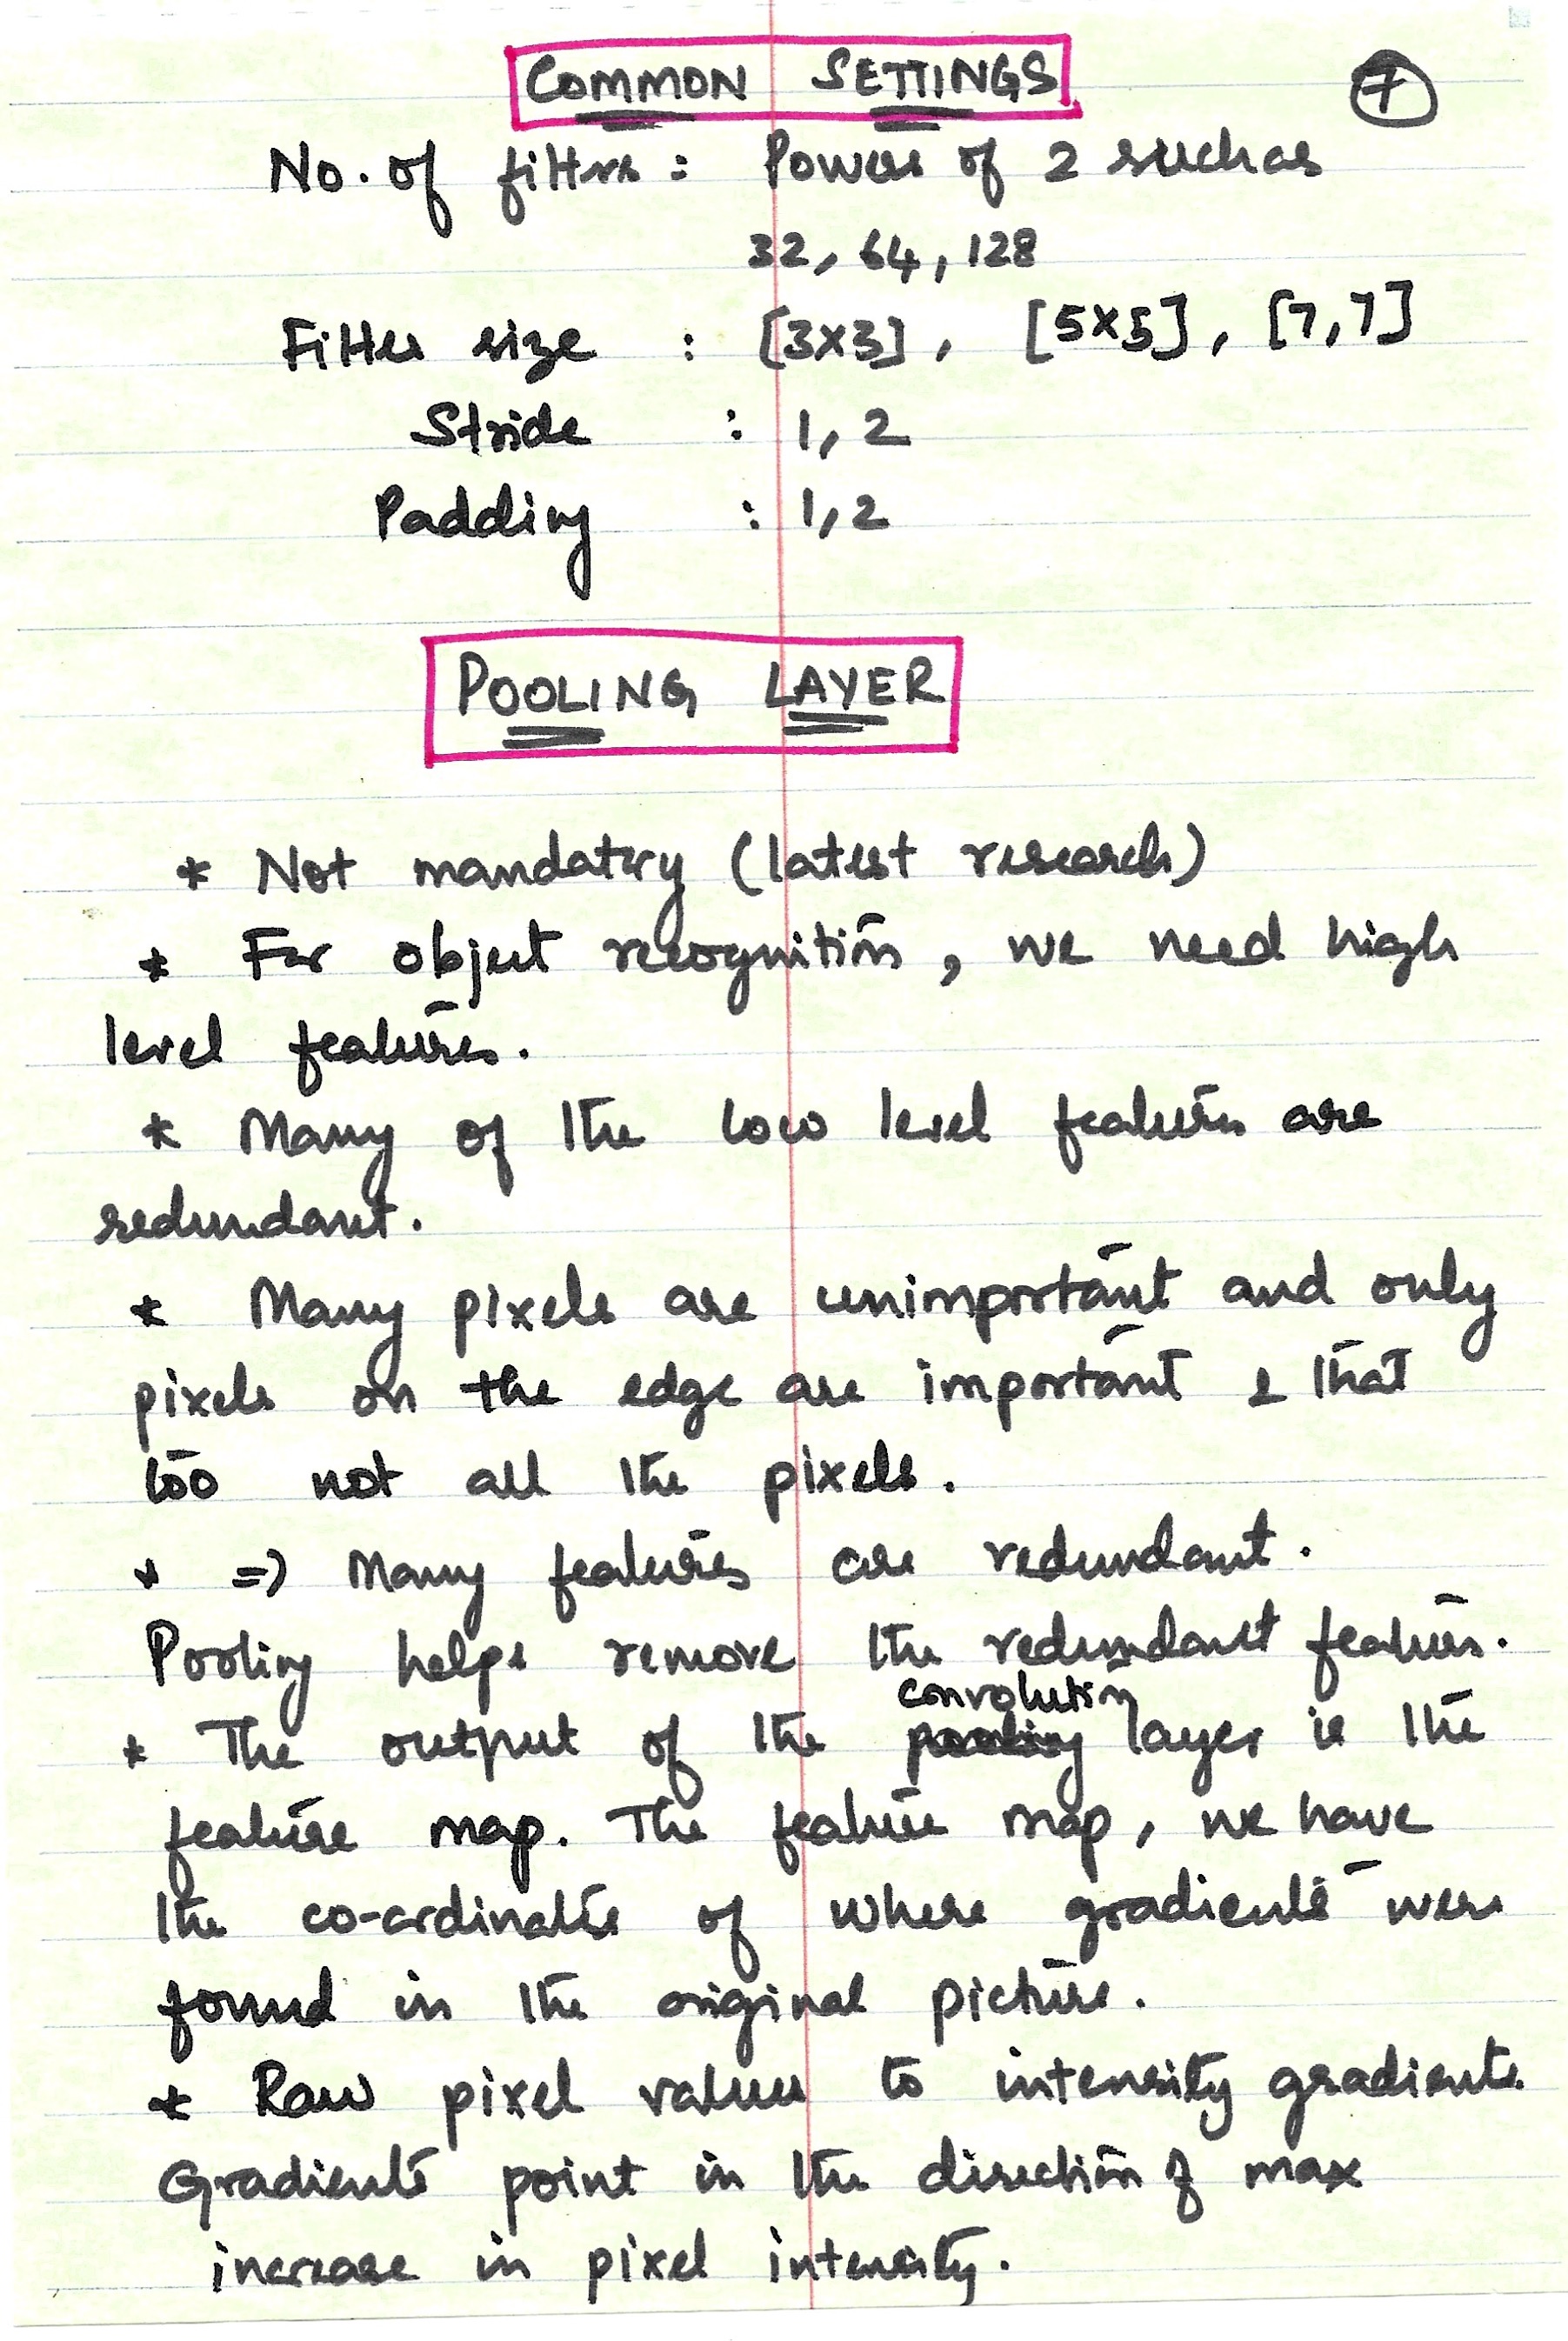 COMMON SETTINGS 7
No. of filters : Powers of 2 such as
32, 64, 128
Filter size : [3x3], [5x5], [7,7]
Stride : 1, 2
Padding : 1, 2
POOLING LAYER
* Not mandatory (latest research)
* For object recognition, we need high
level features.
* Many of the low level features are
redundant.
* Many pixels are unimportant and only
pixels on the edge are important & that
too not all the pixels.
* => Many features are redundant.
Pooling helps remove the redundant features.
convolution
* The output of the pooling layer is the
feature map. The feature map, we have
the co-ordinates of where gradients were
found in the original picture.
* Raw pixel values to intensity gradients
Gradients point in the direction of max
increase in pixel intensity.